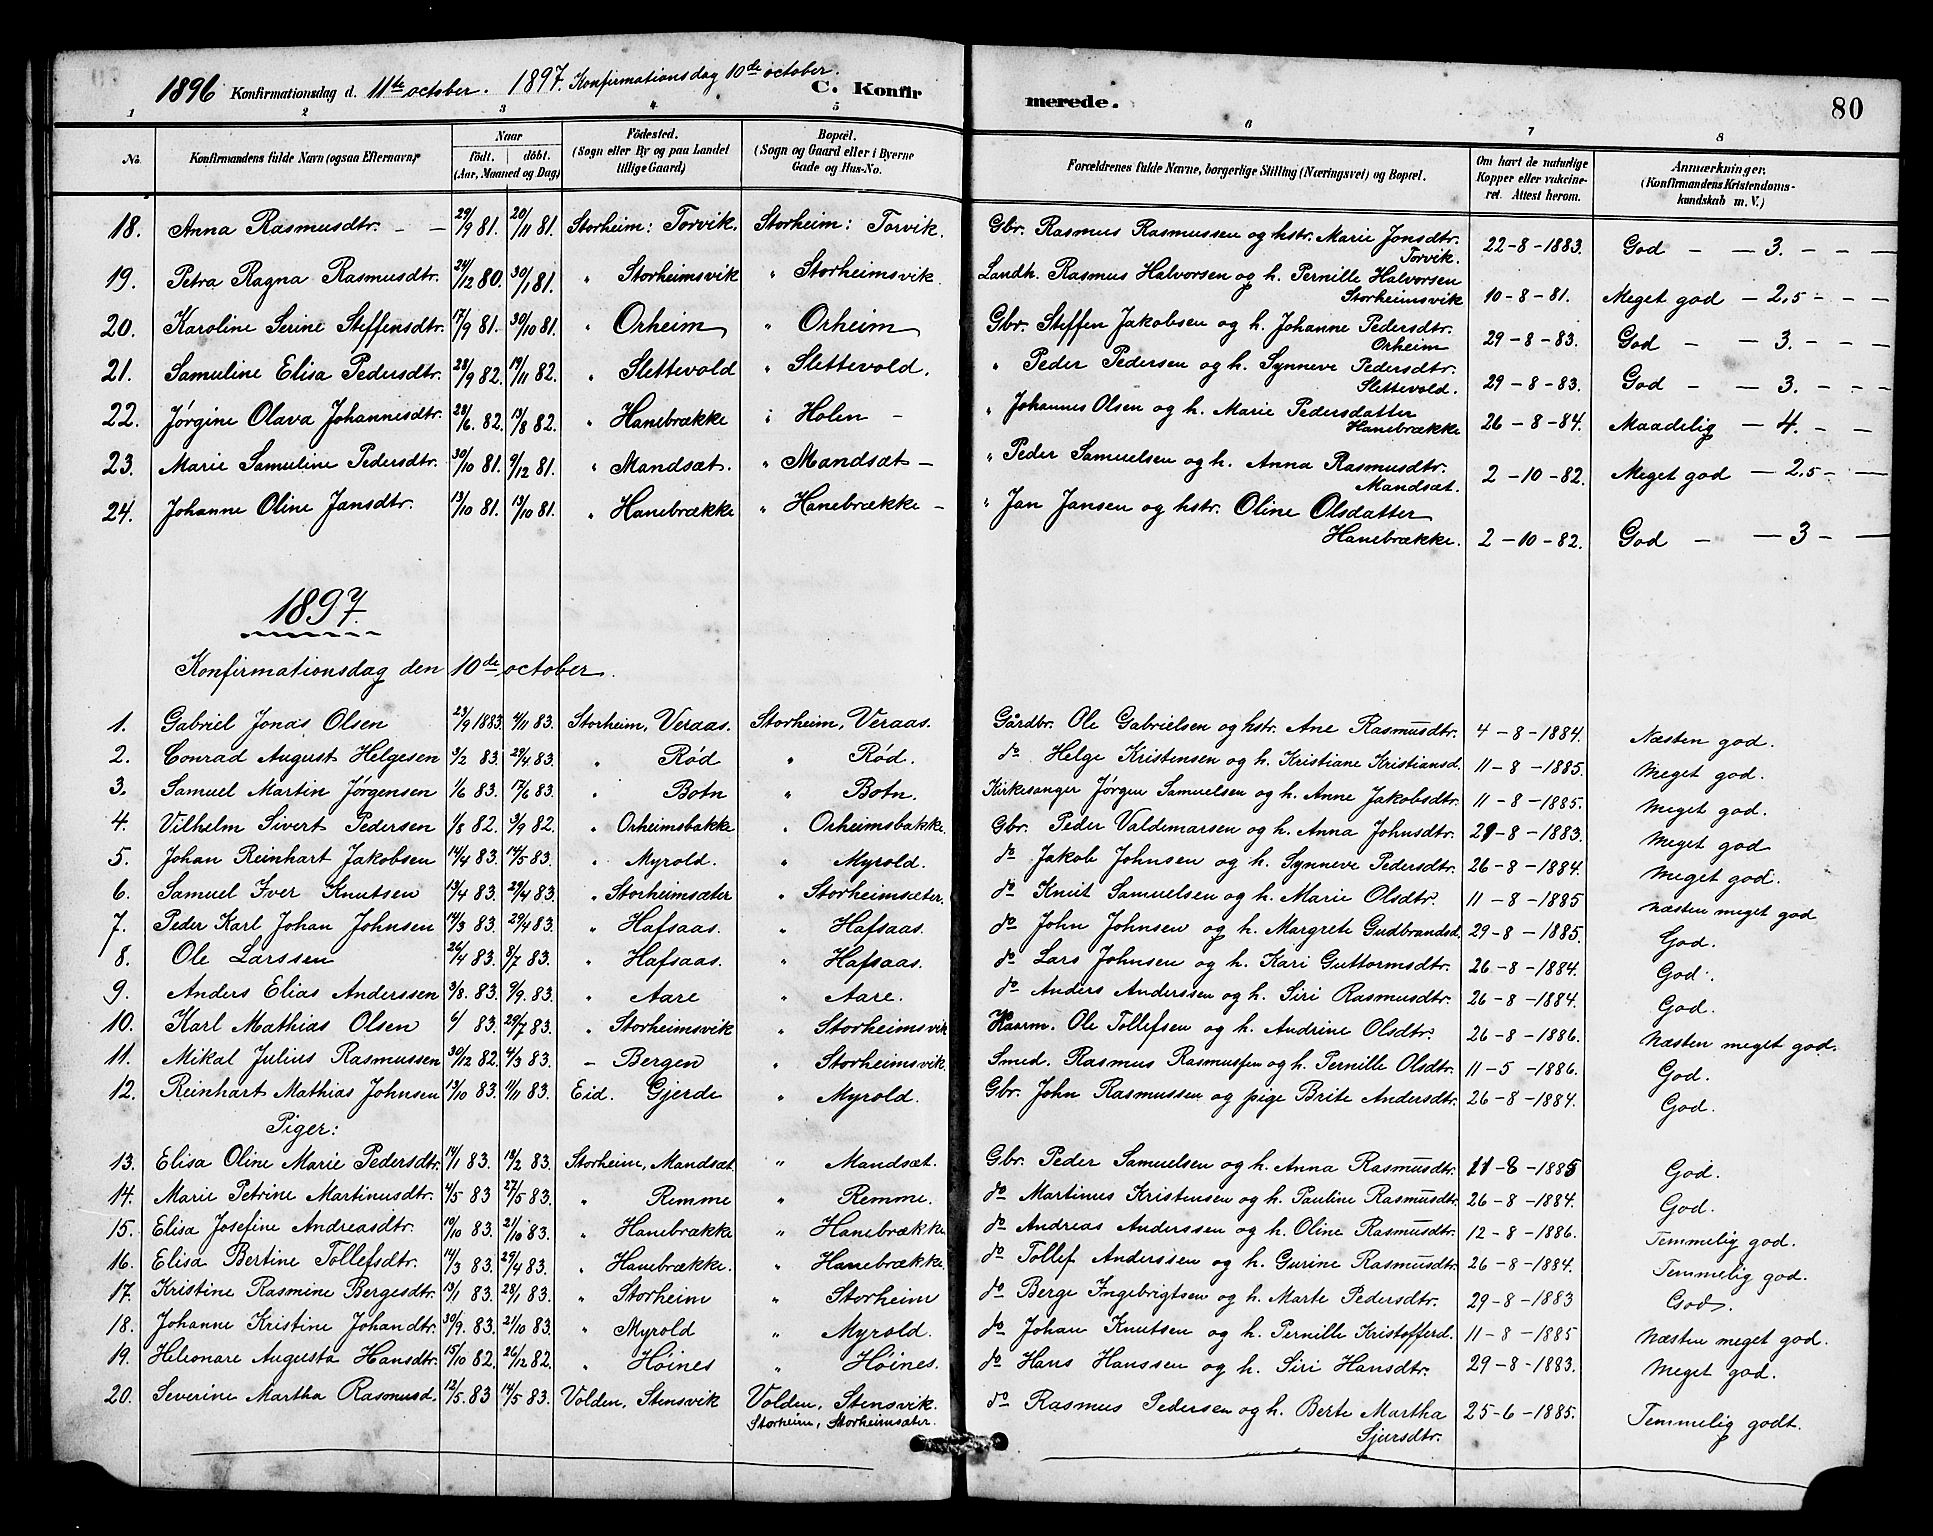 1896 Konfirmationsdag d. 11te october. 1897. Konfirmationsdag 10de october. C. Konfirmerede. 80
1 2 3 4 5 6 7 8
No. | Konfirmandens fulde Navn (ogsaa Efternavn) | Naar født. døbt. (Aar, Maaned og Dag) | Fødested. (Sogn eller By og paa Landet tillige Gaard) | Bopæl. (Sogn og Gaard eller i Byerne Gade og Hus-No. | Forældrenes fulde Navne, borgerlige Stilling (Næringsvei) og Bopæl. | Om havt de naturlige Kopper eller vakcineret. Attest herom. | Anmærkninger. (Konfirmandens Kristendomskundskab m. V.)
18. Anna Rasmusdtr. - - 29/9 81. 20/11 81. Storheim: Torvik. Storheim: Torvik. Gbr. Rasmus Rasmussen og hstr. Marie Jonsdtr. Torvik. 22-8-1883. God - - 3. - - -
19. Petra Ragna Rasmusdtr. 24/12 80. 30/1 81. " Storheimsvik " Storheimsvik. Landh. Rasmus Halvorsen og h. Pernille Halvorsen Storheimsvik 10-8-81. Meget god - 2,5 - - -
20. Karoline Serine Steffensdtr. 17/9 81. 30/10 81. " Orheim " Orheim Gbr. Steffen Jakobsen og h. Johanne Pedersdtr. Orheim 29-8-83. God - - 3. - - -
21. Samuline Elisa Pedersdtr. 28/9 82. 19/11 82. " Slettevold " Slettevold. " Peder Pedersen og h. Synneve Pedersdtr. Slettevold. 29-8-83. God - - 3. - - -
22. Jørgine Olava Johannesdtr. 28/6. 82. 13/8 82. " Hanebrække " Holen - " Johannes Olsen og h. Marie Pedersdatter Hanebrække 26-8-84. Maadelig - 4. - -
23. Marie Samuline Pedersdtr. 30/10 81. 9/12 81. " Mandsæt. " Mandsæt - " Peder Samuelsen og h. Anna Rasmusdtr. Mandsæt. 2-10-82. Meget god - 2,5 - -
24. Johanne Oline Jansdtr. 13/10 81. 13/10 81. " Hanebrække " Hanebrække - " Jan Jansen og hstr. Oline Olsdatter Hanebrække. 2-10-82. God - - 3 - -
1897.
Konfirmationsdag den 10de october.
1. Gabriel Jonas Olsen 23/9 1883. 4/11 83. Storheim, Veraas. Storheim, Veraas. Gårdbr. Ole Gabrielsen og hstr. Ane Rasmusdtr. 4-8-1884. Næsten god.
2. Conrad August Helgesen 3/2 83. 29/4 83. " Rød " Rød. do Helge Kristensen og h. Kristiane Kristiansd. 11-8-1885. Meget god.
3. Samuel Martin Jørgensen 1/6 83. 17/6 83. " Botn " Botn. Kirkesanger Jørgen Samuelsen og h. Anne Jakobsdtr. 11-8-1885. Meget god.
4. Vilhelm Sivert Pedersen 1/8 82. 3/9 82. " Orheimsbakke " Orheimsbakke. Gbr. Peder Valdemarsen og h. Anna Johnsdtr. 29-8-1883. Meget god
5. Johan Reinhart Jakobsen 14/4 83. 14/5 83. " Myrold. " Myrold. do Jakob Johnsen og h. Synneve Pedersdtr. 26-8-1884. Meget god.
6. Samuel Iver Knutsen 13/4 83. 29/4 83. " Storheimsæter " Storheimsæter. do Knut Samuelsen og h. Marie Olsdtr. 11-8-1885 Næsten meget god
7. Peder Karl Johan Johnsen 14/3 83. 29/4 83. " Hafsaas. " Hafsaas. do John Johnsen og h. Margrete Gudbrandsd. 29-8-1885. God.
8. Ole Larssen 26/4 83. 8/7 83. " Hafsaas. " Hafsaas. do Lars Johnsen og h. Kari Guttormsdtr. 26-8-1884. God.
9. Anders Elias Anderssen 3/8. 83. 9/9. 83. " Aare " Aare. do Anders Anderssen og h. Siri Rasmusdtr. 26-8-1884. God.
10. Karl Mathias Olsen 6/ 83. 29/7 83. " Storheimsvik " Storheimsvik Haarm. Ole Tollefsen og h. Andrine Olsdtr. 26-8-1886. Næsten meget god.
11. Mikal Julius Rasmussen 30/12 82. 4/3 83. - Bergen " Storheimsvik. Smed. Rasmus Rasmussen og h. Pernille Olsdtr. 11-5-1886. God.
12. Reinhart Mathias Johnsen 13/10 83. 11/11 83. Eid. Gjerde " Myrold. Gbr. John Rasmussen og pige Brite Andersdtr. 26-8-1884. God.
Piger:
13. Elisa Oline Marie Pedersdtr. 14/1 83. 18/2 83. Storheim, Mandsæt. " Mandsæt. Gbr. Peder Samuelsen og h. Anna Rasmusdtr. 11-8-1885 God.
14. Marie Petrine Martinusdtr. 4/5 83 27/5 83. " Remme " Remme. do Martinus Kristensen og h. Pauline Rasmusdtr. 26-8-1884. God.
15. Elisa Josefine Andreasdtr. 19/10 83. 21/10 83. " Hanebrække " Hanebrække. do Andreas Anderssen og h. Oline Rasmusdtr. 12-8-1886. Temmelig god.
16. Elisa Bertine Tollefsdtr. 14/3 83. 29/4 83. " Hanebrække. " Hanebrække. do Tollef Anderssen og h. Gurine Rasmusdtr. 26-8-1884. Temmelig god.
17. Kristine Rasmine Bergesdtr. 13/1 83. 28/1 83. " Storheim " Storheim do Berge Ingebrigtsen og h. Marte Pedersdtr. 29-8-1883 God.
18. Johanne Kristine Johandtr. 30/9. 83. 21/10 83. " Myrold " Myrold. do Johan Knutsen og h. Pernille Kristofferd. 11-8-1885 Næsten meget god.
19. Helionare Augusta Hansdtr. 15/10 82. 26/12 82. " Høines " Høines. do Hans Hanssen og h. Siri Hansdtr. 29-8-1883. Meget god.
20. Severine Martha Rasmusd. 12/5. 83 14/5 83. Volden, Stensvik Volden, Stensvik. Storheim, Storheimsæter. do Rasmus Pedersen og h. Berte Martha Sjursdtr. 25-6-1885. Temmelig godt.